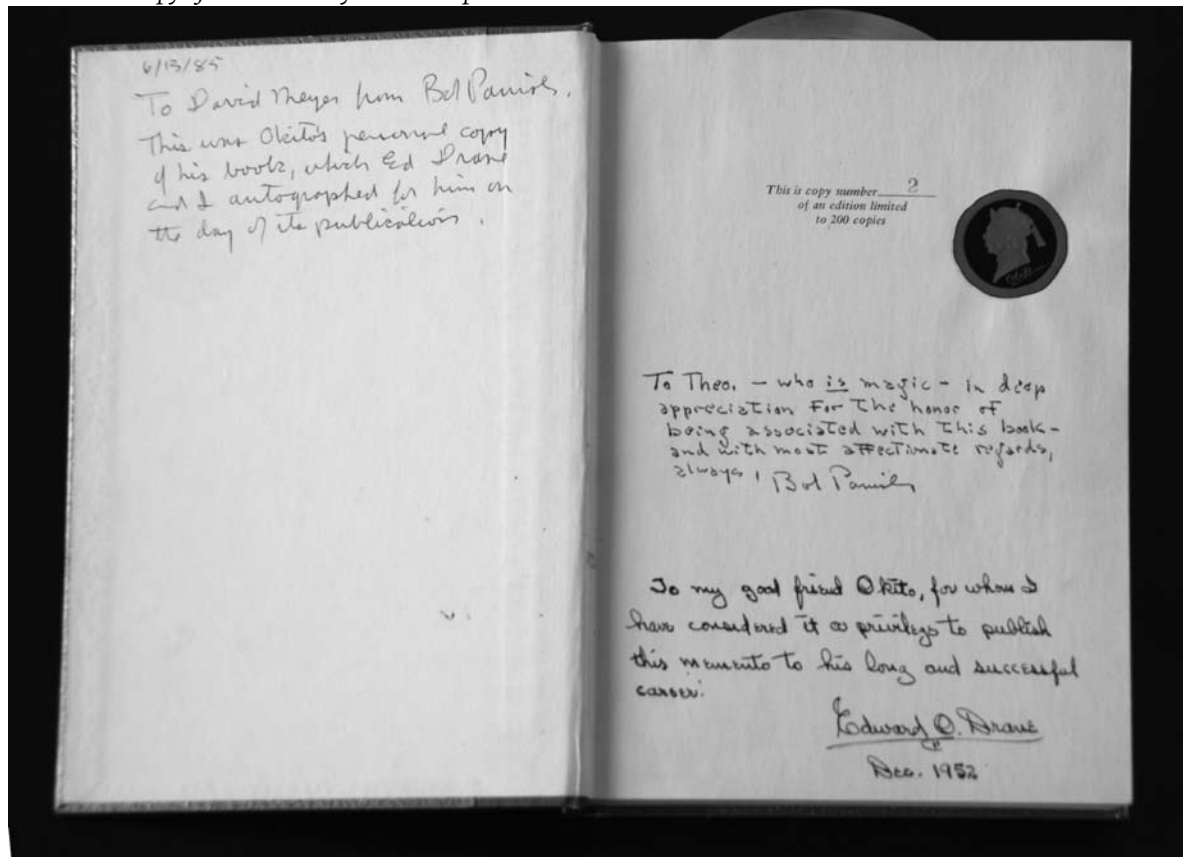 6/13/85
To David Meyer from Bob Parrish.
This was Okito's personal copy
of his book, which Ed Drane
and I autographed for him on
the day of its publication.
This is copy number 2
of an edition limited
to 200 copies
To Theo. – who is magic – in deep
appreciation for the honor of
being associated with this book –
and with most affectionate regards,
always, Bob Parrish
To my good friend Okito, for whom I
have considered it a privilege to publish
this memento to his long and successful
career.
Edward O. Drane
Dec. 1952